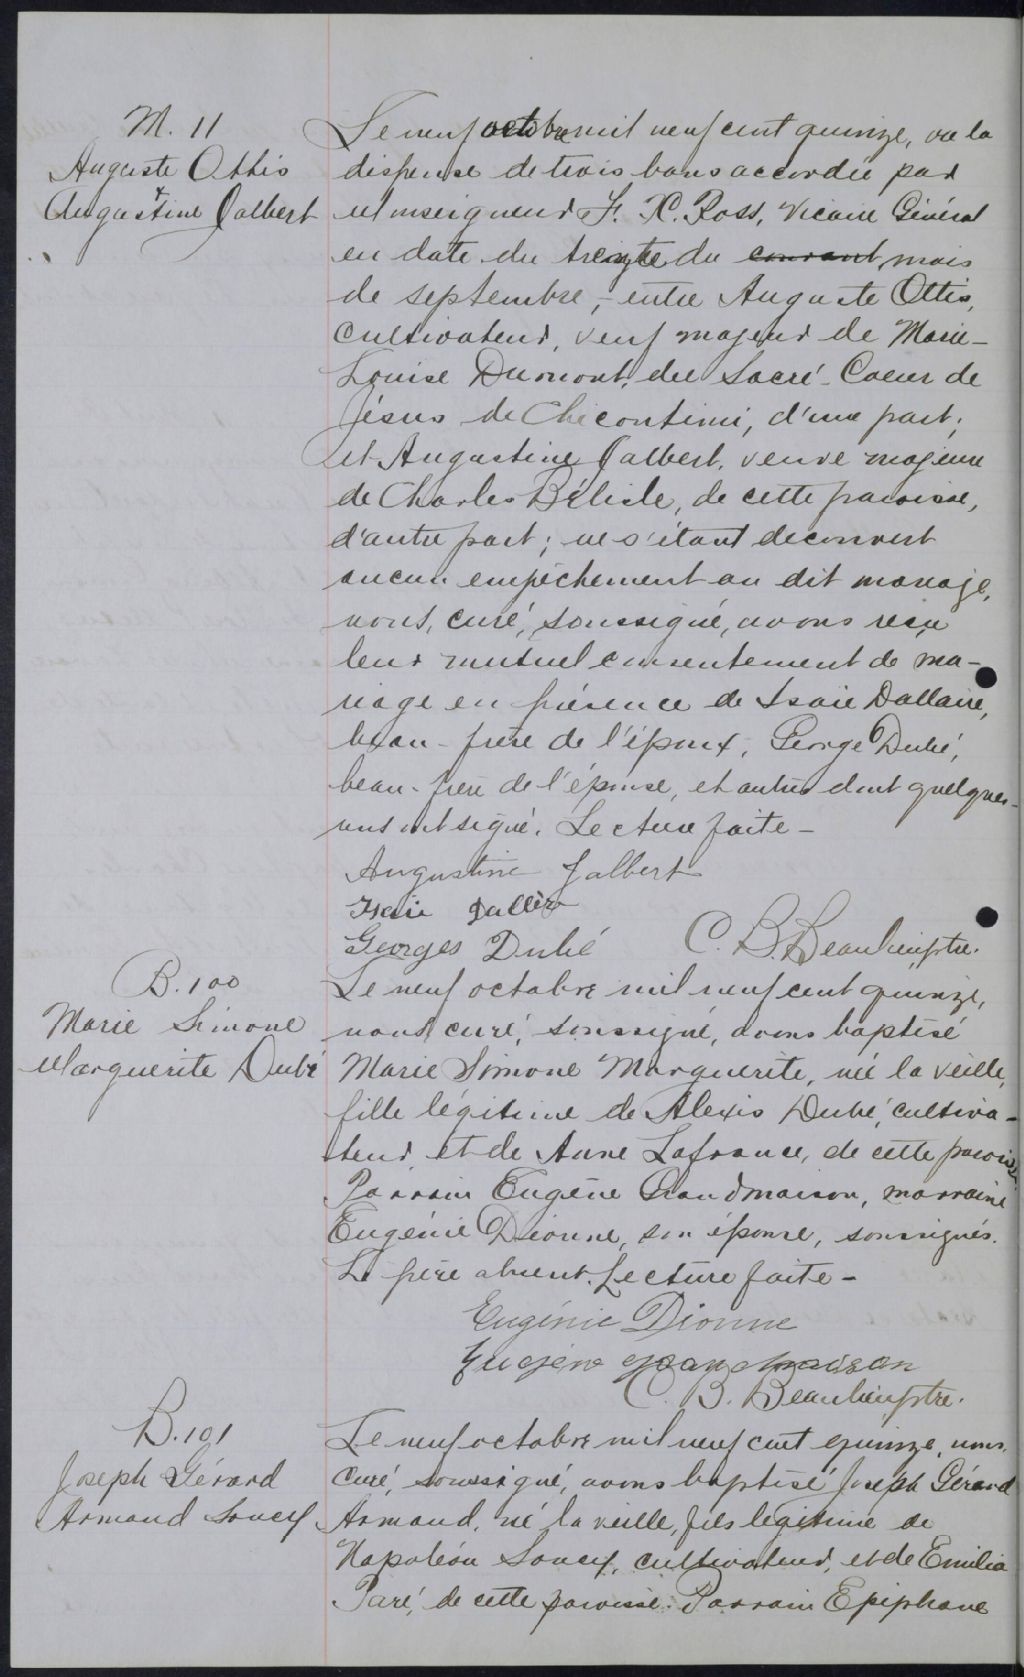 M. 11
Auguste Ottis
&
Augustine Jalbert
Le neuf octobre mil neuf cent quinze, vu la
dispense de trois bans accordée par
Monseigneur F. X. Ross, Vicaire Général
en date du treizte du courant, mois
de septembre, entre Auguste Ottis,
cultivateur, veuf majeur de Marie-
Louise Dumont, du Sacré-Coeur de
Jésus de Chicoutimi, d'une part;
et Augustine Jalbert, veuve majeure
de Charles Bélisle, de cette paroisse,
d'autre part; ne s'étant decouvert
aucun empêchement au dit mariage,
nous, curé, soussigné, avons reçu
leur mutuel consentement de ma-
riage en présence de Isaie Dallaire,
beau-frère de l'époux, George Dubé,
beau-frère de l'épouse, et autres dont quelques-
uns ont signé. Lecture faite -
Augustine Jalbert
Isaie Dallère
Georges Dubé C. B. Beaulieu, ptre.
B. 100
Marie Simone
Marguerite Dubé
Le neuf octobre mil neuf cent quinze,
nous curé, soussigné, avons baptisé
Marie Simone Marguerite, née la veille,
fille légitime de Alexis Dubé, cultiva-
teur et de Anne Lafrance, de cette paroisse.
Parrain Eugène Grandmaison, marraine
Eugénie Dionne, son épouse, soussignés.
Le père absent. Lecture faite -
Eugénie Dionne
Eugène grandmaison
C. B. Beaulieu, ptre.
B. 101
Joseph Gérard
Armand Soucy
Le neuf octobre mil neuf cent quinze, nous,
curé, soussigné, avons baptisé Joseph Gérard
Armand, né la veille, fils légitime de
Napoléon Soucy, cultivateur, et de Emilia
Paré, de cette paroisse. Parrain Epiphane